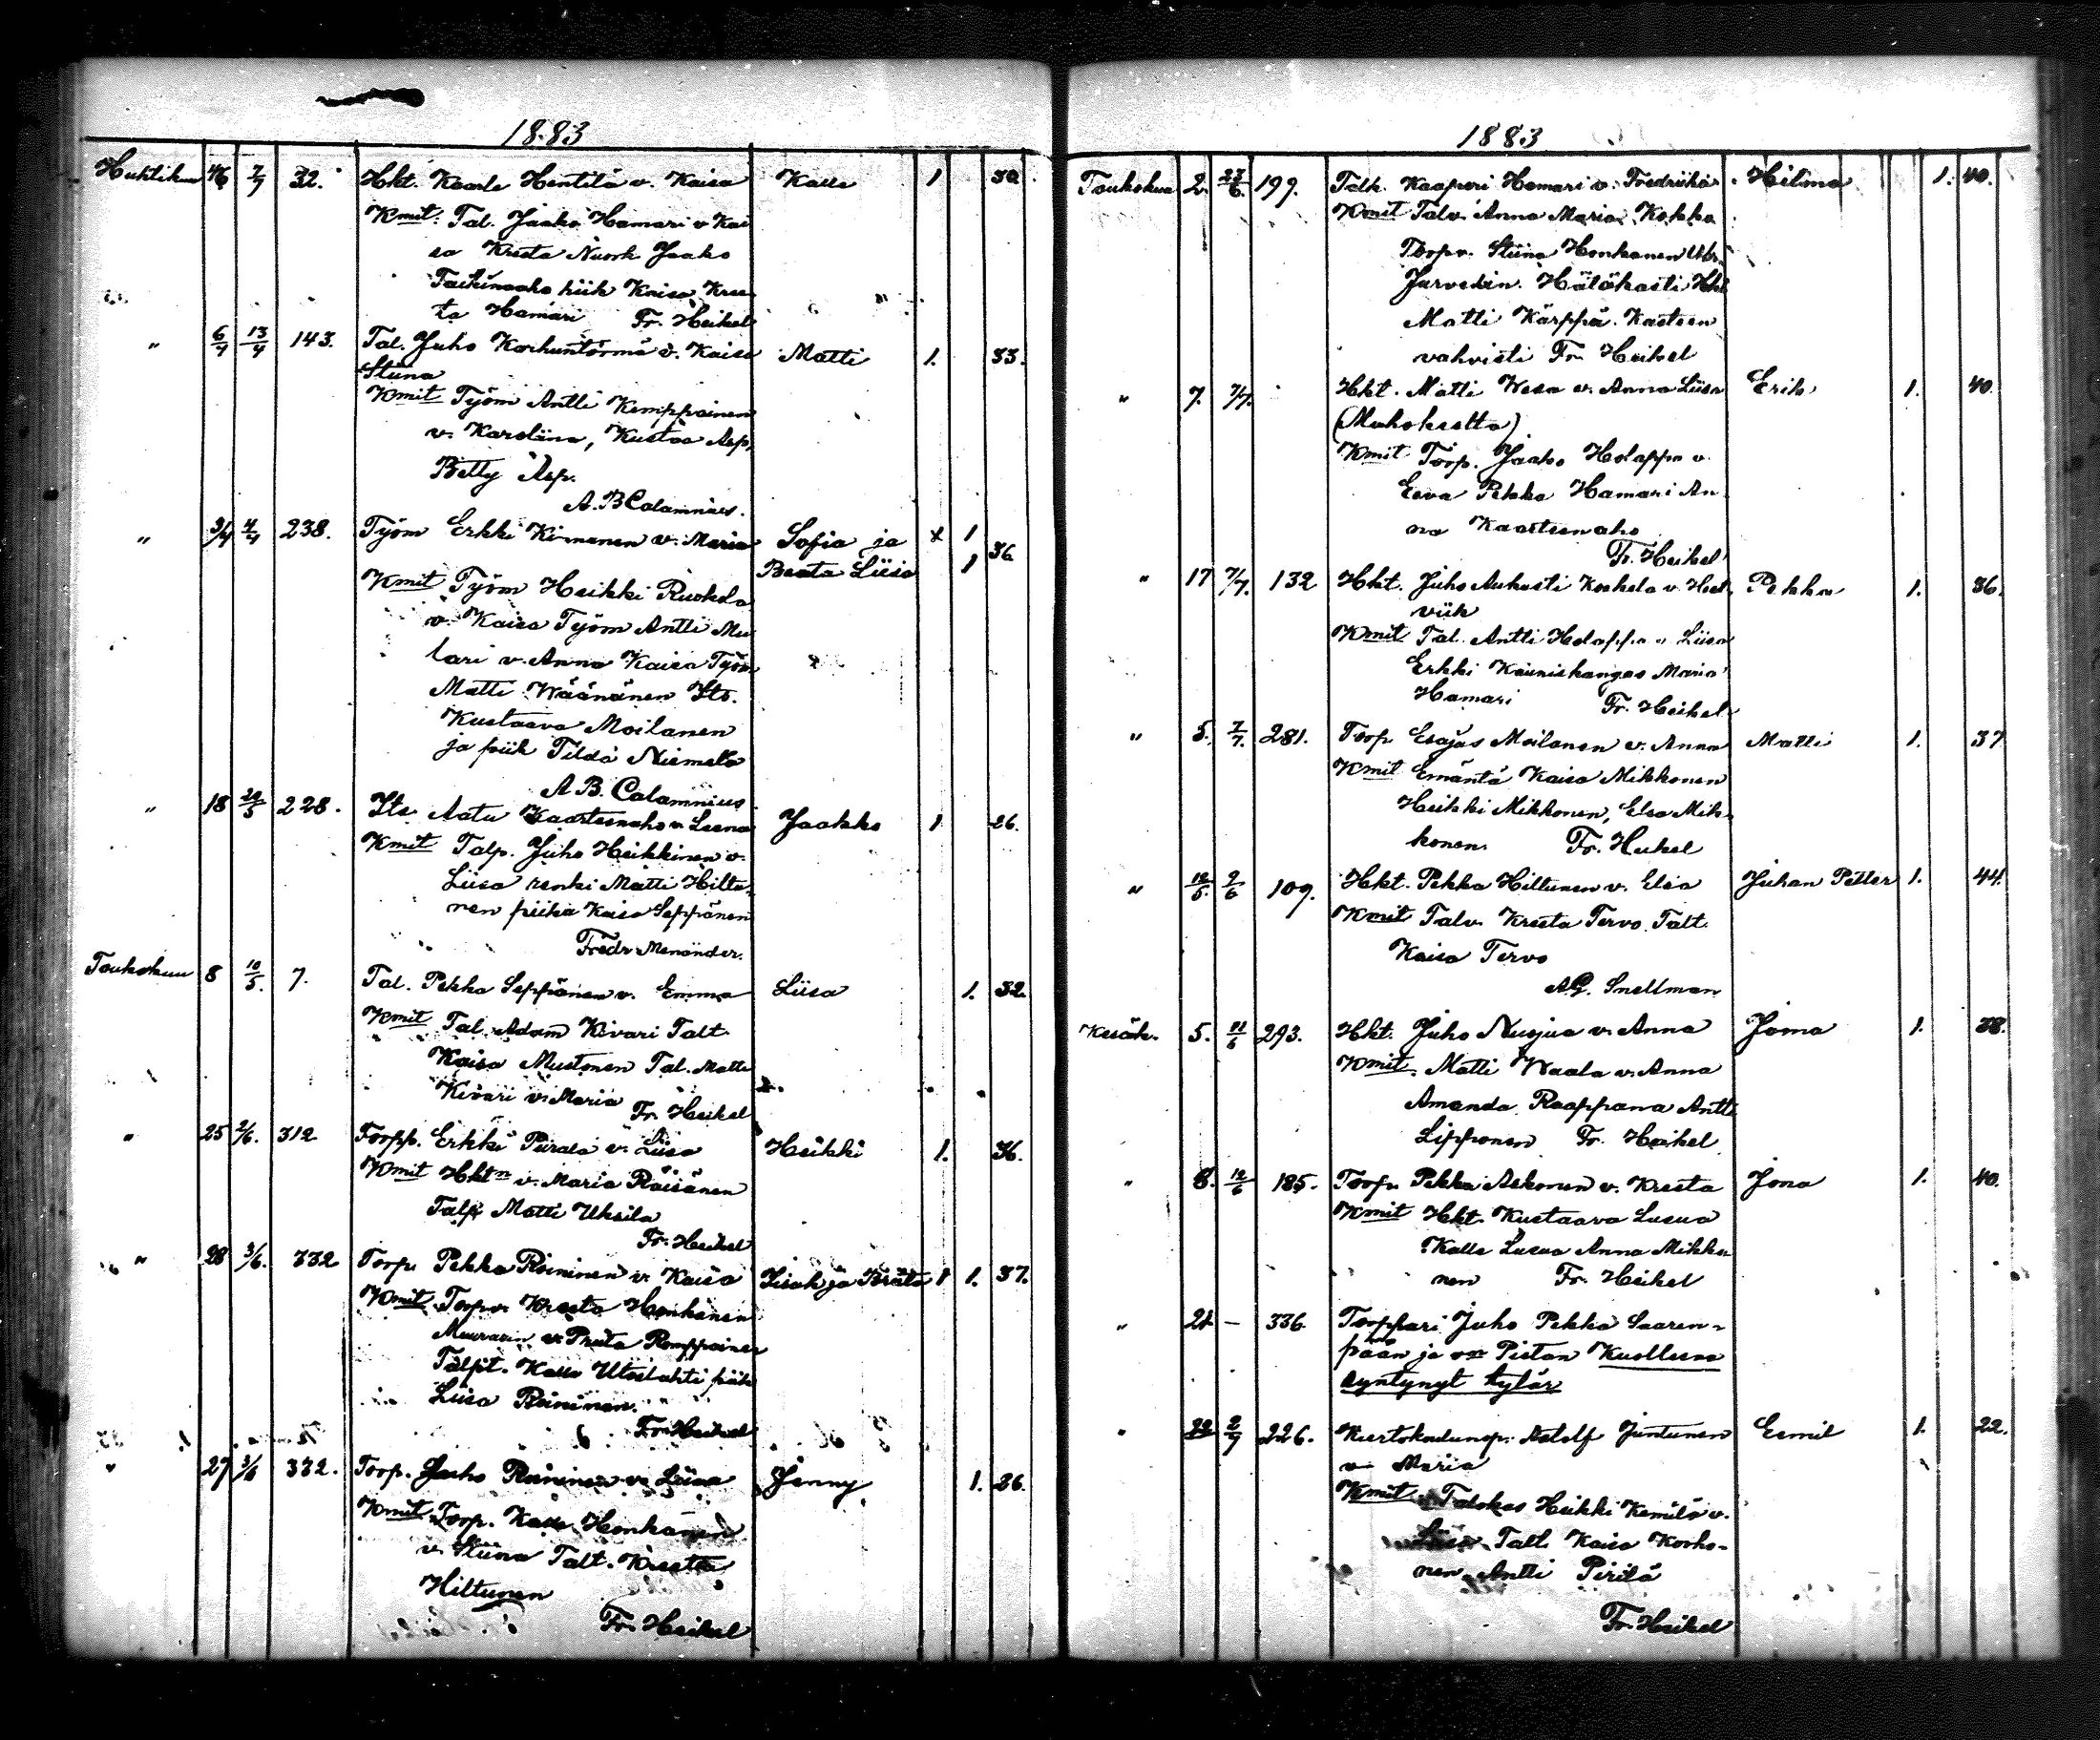 1883
Huhtikuu 16 7/7 32. Hkt. Kaarle Hentilä v. Kaisa Kalle 1 30.
Kmit. Tal. Jaako Hamari v Kai
sa Kreeta Nuork Jaako
Taikinaaho piik Kaisa Kree
ta Hamari Fr. Heikel
" 6/4 13/4 143. Tal. Juho Karhuntörmä v. Kaisa Matti 1. 33.
Stiina
Kmit Työm Antti Kemppainen
v. Karoliina, Kustaa Asp,
Betty Asp.
A. B Calamnius.
" 3/4 4/4 238. Työm Erkki Kinnunen v. Maria Sofia ja x 1 36
Beata Liisa 1
Kmit Työm Heikki Ruokola
v. Kaisa Työm Antti Mu
lari v. Anna Kaisa Työm
Matti Wäänänen Its.
Kustaava Moilanen
ja piik Tilda Niemelä
A B. Calamnius
" 18 20/5 228. Its. Aatu Kaarteenaho v. Leena Jaakko 1 26.
Kmit Talp. Juho Heikkinen v.
Liisa renki Matti Hiltu-
nen piika Kaisa Seppänen
Fredr Menander.
Toukokuu 8 10/5. 7. Tal. Pekka Seppänen v. Emma Liisa 1. 32.
Kmit Tal. Adam Kivari Talt.
Kaisa Mustonen Tal. Matti
Kivari v. Maria Fr. Heikel
" 25 2/6. 312 Torpp. Erkki Piirala v. Liisa Heikki 1. 36.
Kmit Hktn v. Maria Räisänen
Talp Matti Uksila
Fr. Heikel
" 28 3/6. 332 Torp. Pekka Roininen v. Kaisa Iisak ja Briita 1 1. 37.
Kmit Torpv. Kreeta Honkanen
Muurarin v. Priita Romppainen
Talpt. Kalle Utoslahti piik
Liisa Roininen.
Fr. Heikel
" 27 3/6 332. Torp. Juho Roininen v. Liisa Jenny 1. 26.
Kmit Torp. Kalle Honkanen
v. Stiina Talt. Kreetta
Hiltunen
Fr. Heikel
1883
Toukokuu 2. 23/6. 199. Talk. Kaaperi Hamari v. Fredriika Hilma 1. 40.
Kmit Talv. Anna Maria Kokko
Torpv. Stiina Honkanen
Jurvelin. Hätäkasti Hkt
Matti Kärppä. Kasteen
vahvisti Fr. Heikel
" 7. 7/7. Hkt. Matti Wesa v. Anna Liisa Erik 1. 40.
(Muhokselta)
Kmit Torp. Jaako Holappa v.
Eeva Pekka Hamari An
na Kaarteenaho
Fr. Heikel
" 17 7/7. 132 Hkt. Juho Aukusti Koskela v. Hed- Pekka 1. 36.
viik
Kmit Tal. Antti Holappa v. Liisa
Erkki Kauniskangas Maria
Hamari Fr. Heikel
" 5. 7/7. 281. Torp Esajas Moilanen v. Anna Matti 1. 37
Kmit Emäntä Kaisa Mikkonen
Heikki Mikkonen, Elsa Mik-
konen. Fr. Heikel
" 12/5. 9/6 109. Hkt. Pekka Hiltunen v. Elsa Juhan Petter 1. 44.
Kmit Talv. Kreeta Tervo Talt.
Kaisa Tervo
A.G. Snellman
Kesäk. 5. 11/6 293. Hkt. Juho Nuojua v. Anna Joma 1. 28.
Kmit. Matti Waala v. Anna
Amanda Raappana Antti
Lipponen Fr. Heikel
" 8. 12/6 185. Torp. Pekka Askonen v. Kreeta Jona 1. 40.
Kmit Hkt. Kustaava Lusua
Kalle Lusua Anna Mikko
nen Fr. Heikel
" 21 — 336. Torppari Juho Pekka Saaren-
pään ja von Pietan Kuolleena
syntynyt tytär
" 22 2/7 226. Kiertokoulunop. Adolf Juntunen Eemil 1. 22.
v Maria
Kmit Talokas Heikki Kemilä v.
Liisa Talt. Kaisa Korho-
nen Antti Pirilä
Fr. Heikel